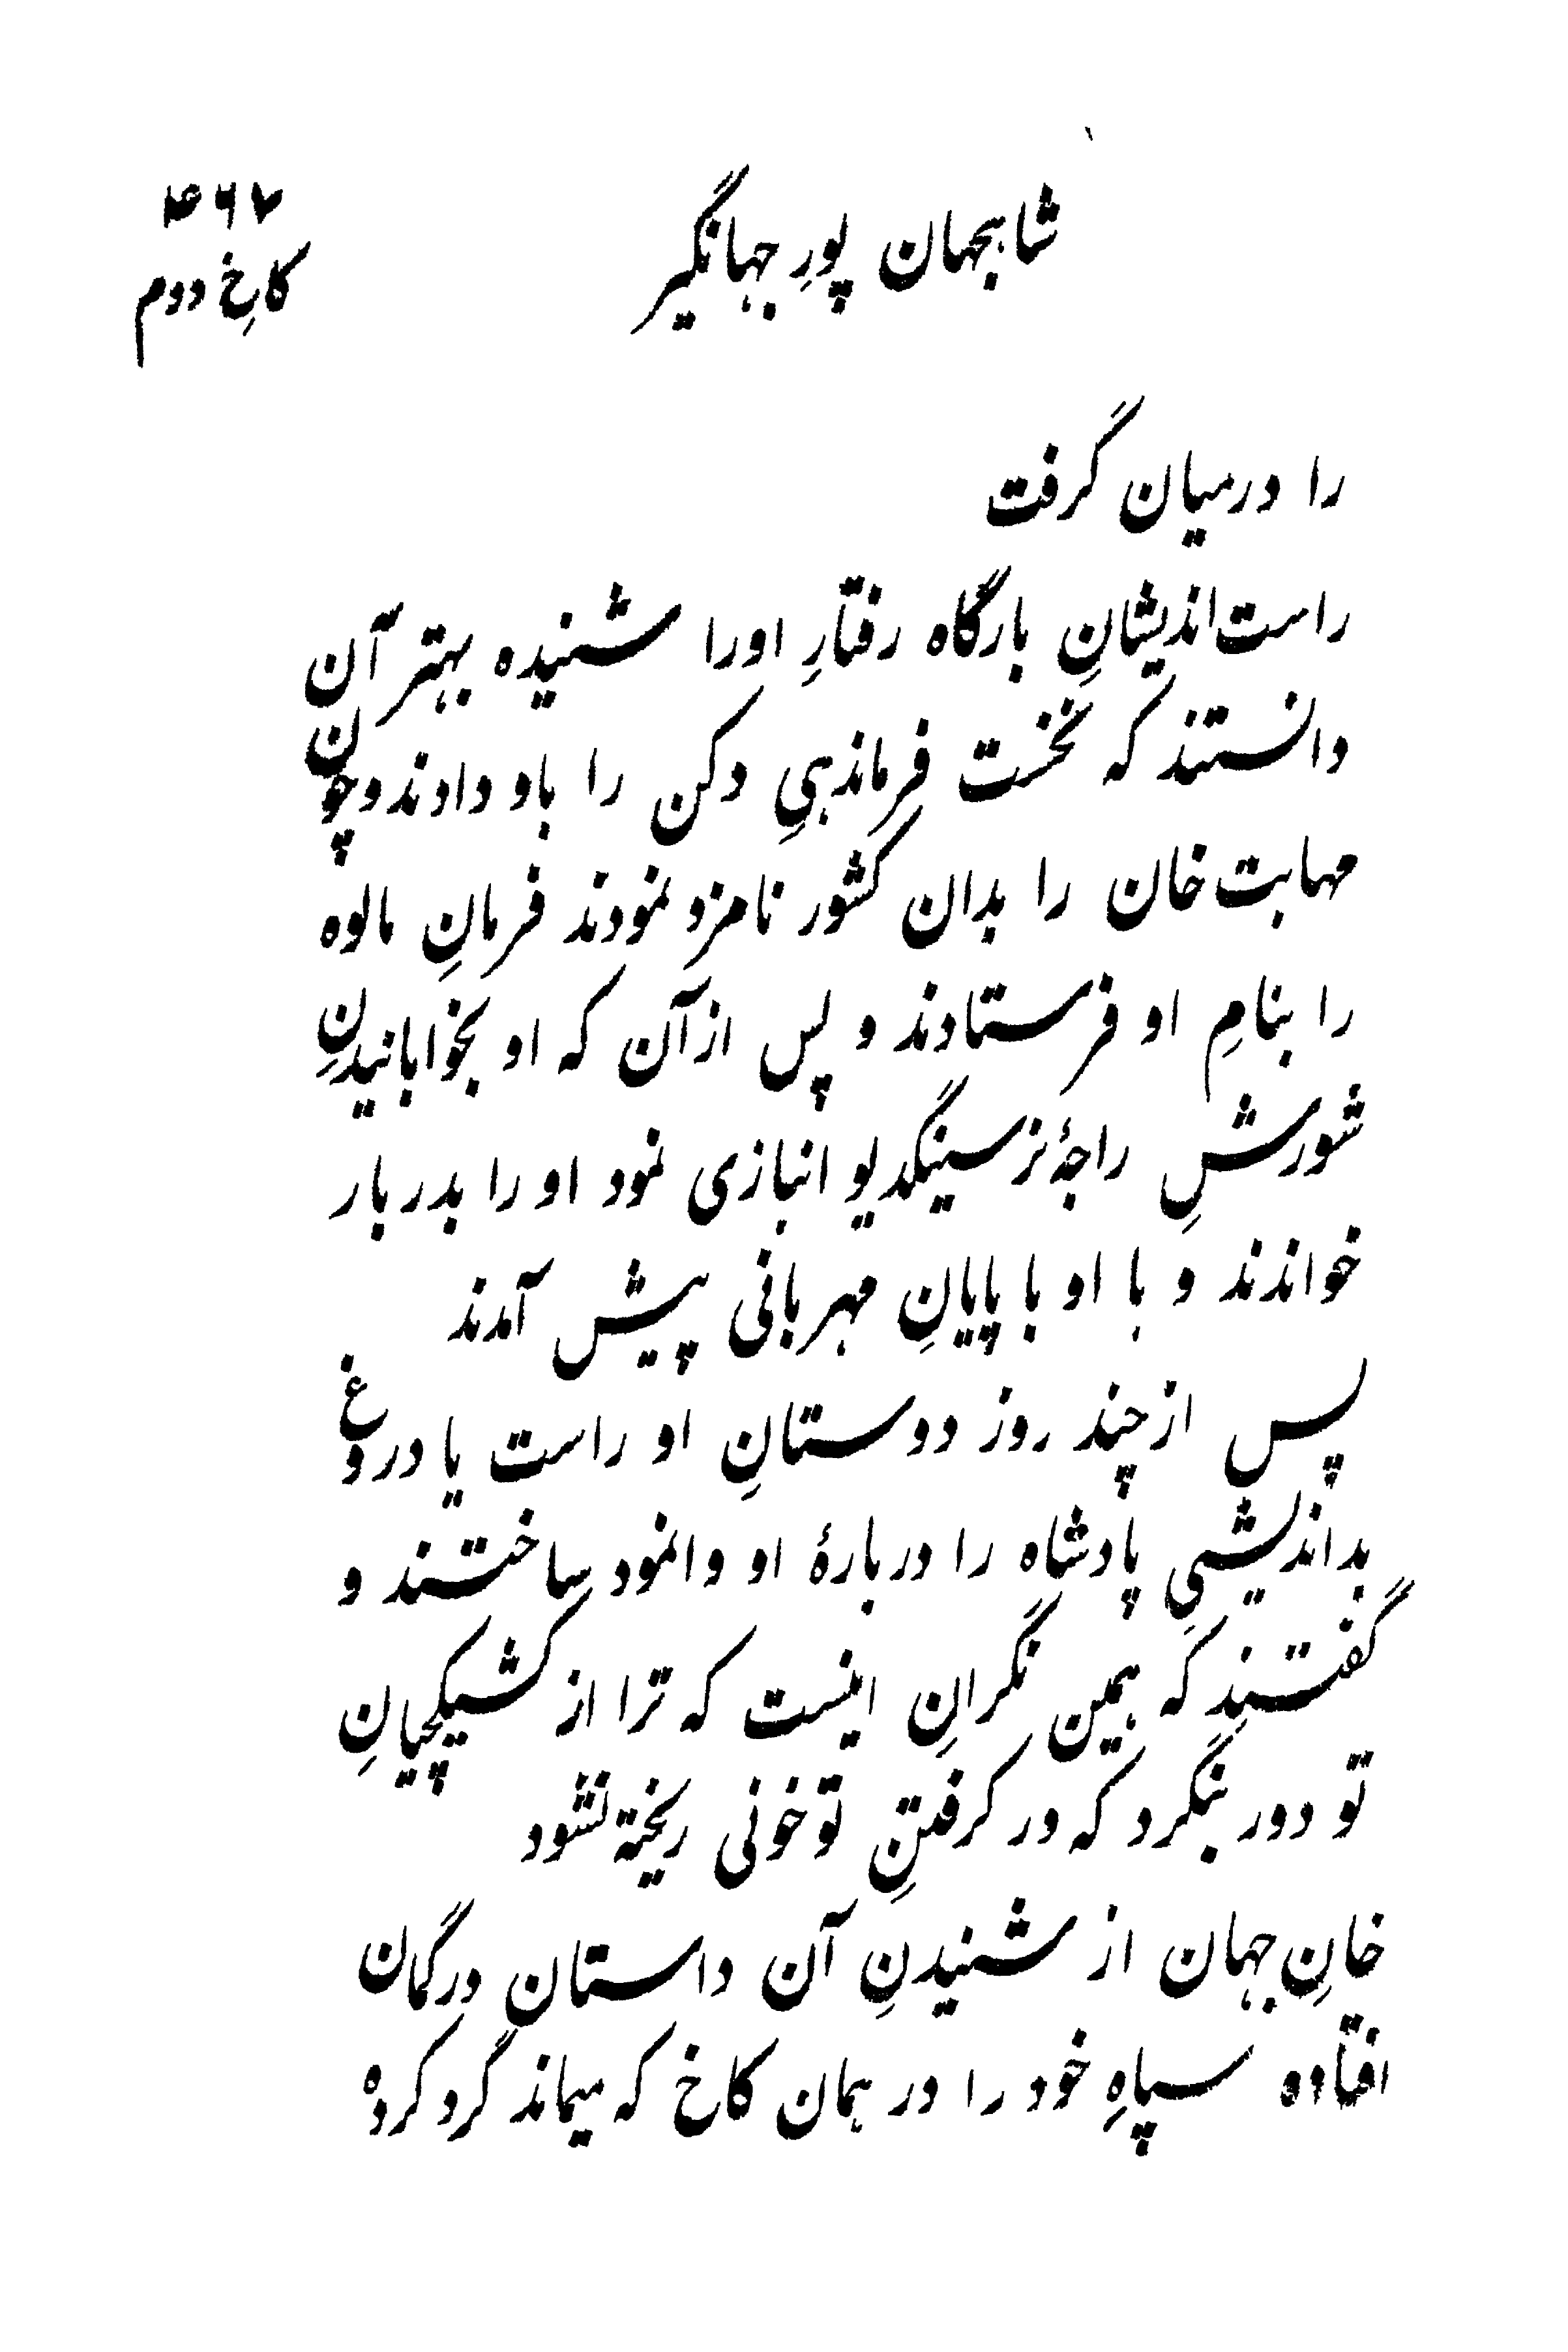 شاهجهان پورِ جهانگیر
۴۶۷
کاخِ دوم
را درمیان گرفت
راست‌اندیشانِ بارگاه رفتارِ اورا شنیده بهتر آن
دانستند که نخست فرماندهیِ دکن را باو دادند و چون
مهابت خان را بدان کشور نامزد نمودند فرمانِ مالوه
را بنامِ او فرستادند و پس ازآن که او بخوابانیدنِ
شورشِ راجهٔ نرسینگدیو انبازی نمود او را بدربار
خواندند و با او با پایانِ مهربانی پیش آمدند
پس از چند روز دوستانِ او راست یا دروغ
بداندیشیِ پادشاه را دربارهٔ او وانمود ساختند و
گفتند که همین نگرانِ اینست که ترا از کشیکچیانِ
تو دور بنگرد که در گرفتنِ تو خونی ریخته نشود
خانِ جهان از شنیدنِ آن داستان درگمان
افتاده سپاهِ خود را در همان کاخ که میماند گرد کرده